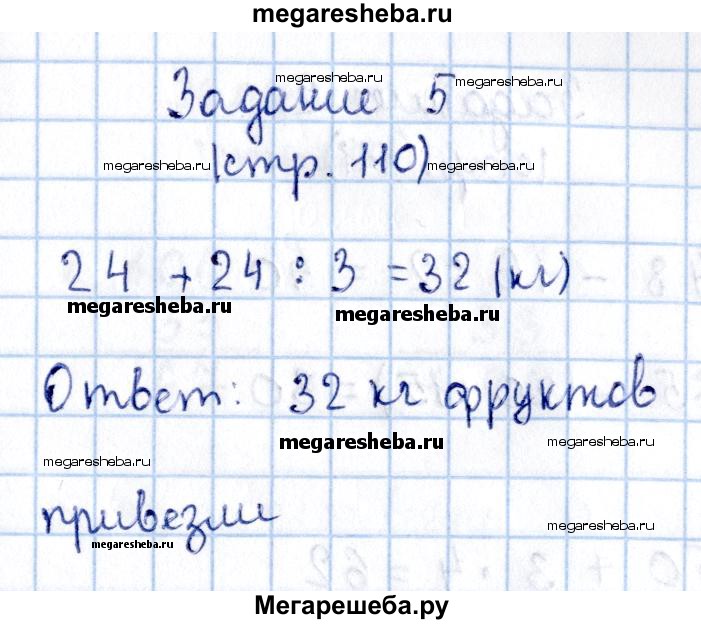 megaresheba.ru
Задание 5
megaresheba.ru megaresheba.ru
megaresheba.ru (стр. 110) megaresheba.ru
24 + 24 : 3 = 32 (кг)
megaresheba.ru megaresheba.ru
Ответ: 32 кг фруктов
megaresheba.ru megaresheba.ru
megaresheba.ru
привезли
megaresheba.ru megaresheba.ru
Мегарешеба.ру